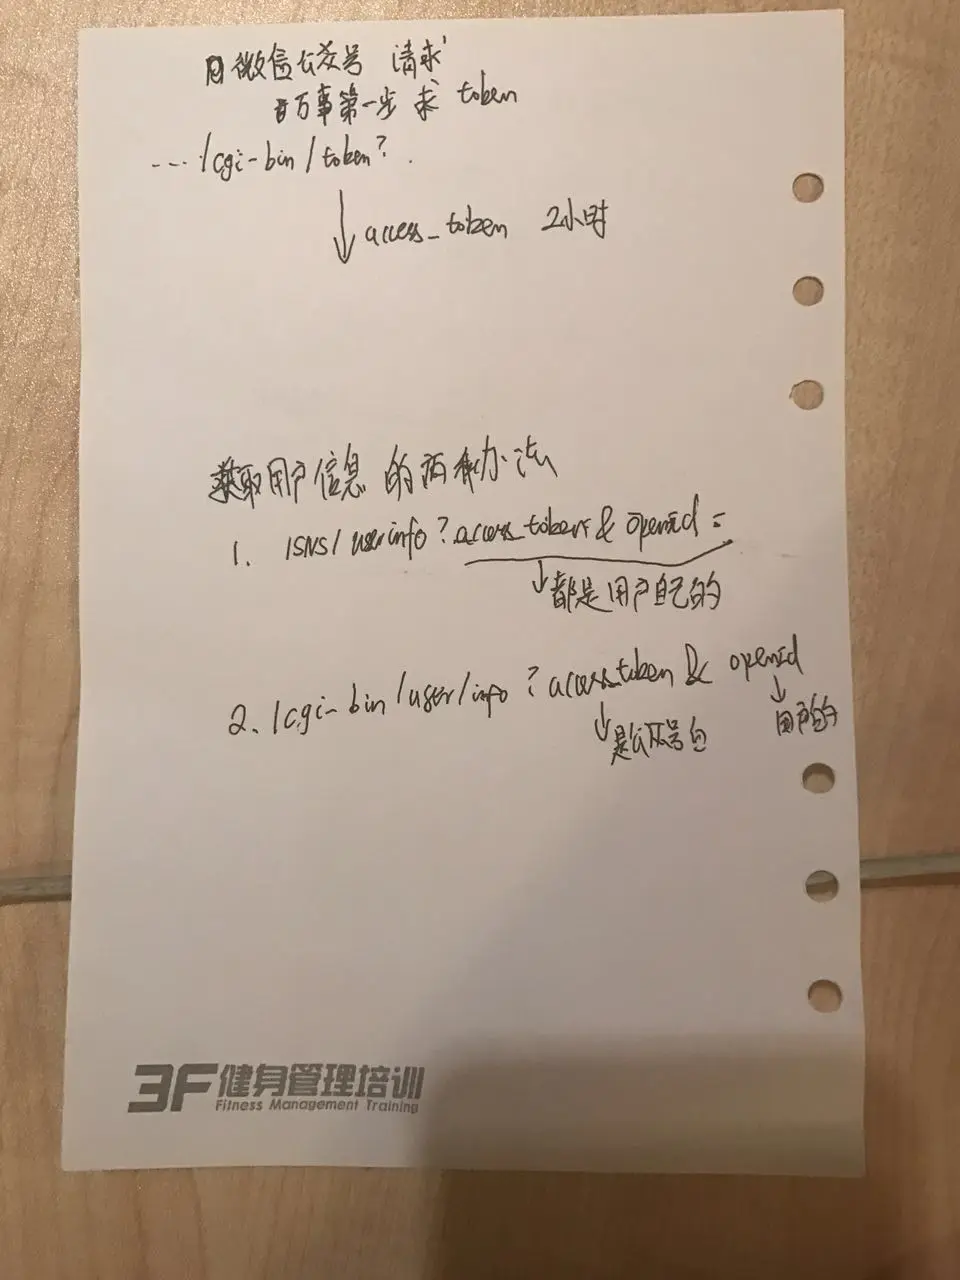 微信公众号 请求
万事第一步 求 token
---- /cgi-bin/token?
access_token 2小时
获取用户信息 的两种办法
1. /SNS/userinfo?access_token & openid =
都是用户自己的
2. /cgi-bin/user/info?access_token & openid
是公众号的 用户的
3F健身管理培训
Fitness Management Training